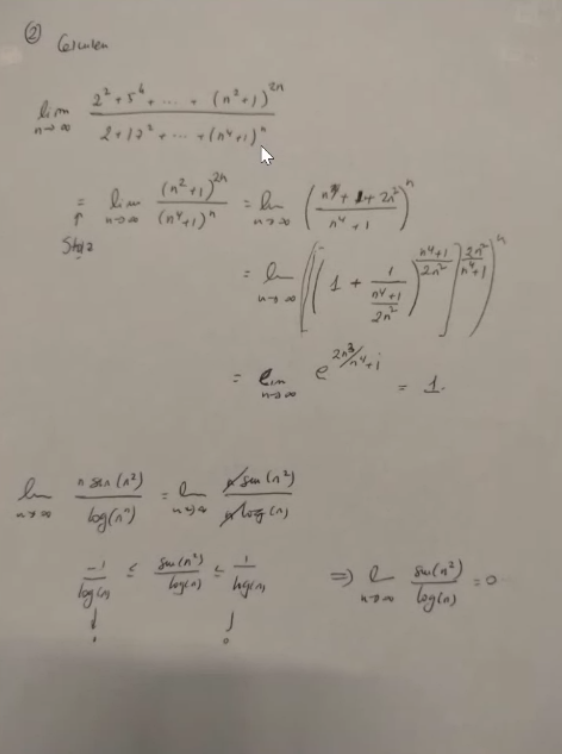 ②
Calculen
lim n→∞ (2² + 5⁴ + ... + (n²+1)²ⁿ) / (2 + 17² + ... + (n⁴+1)ⁿ)
= lim n→∞ (n²+1)²ⁿ / (n⁴+1)ⁿ = lim n→∞ ((n⁴ + 1 + 2n²) / (n⁴+1))ⁿ
↑
Stolz
= lim n→∞ [((1 + 1/((n⁴+1)/(2n²)))^((n⁴+1)/(2n²)))^(2n²/(n⁴+1))]ⁿ
= lim n→∞ e^(2n³/(n⁴+1)) = 1.
lim n→∞ (n sin(n²)) / log(nⁿ) = lim n→∞ (n sin(n²)) / (n log(n))
-1/log(n) ≤ sin(n²)/log(n) ≤ 1/log(n) ⇒ lim n→∞ sin(n²)/log(n) = 0
↓ ↓
0 0